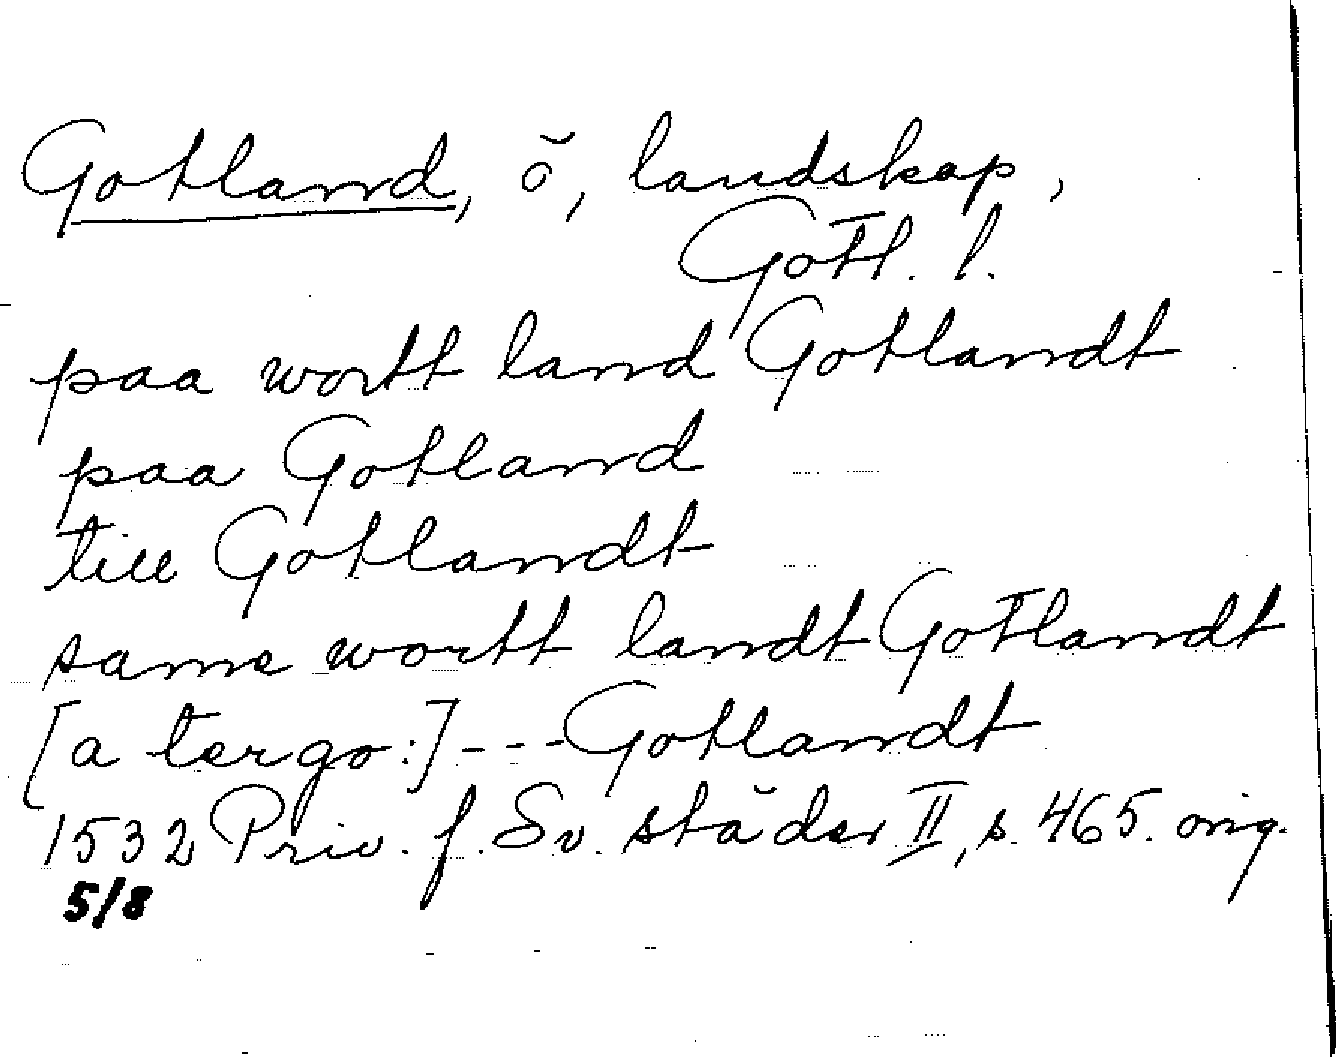 Gotland, ö, landskap,
Gotl. l.
paa wortt land Gotlandt
paa Gotland
till Gotlandt
same wortt landt Gotlandt
[a tergo:] - - - Gotlandt
1532 Priv. f. Sv. städer II, s. 465. orig.
5/8